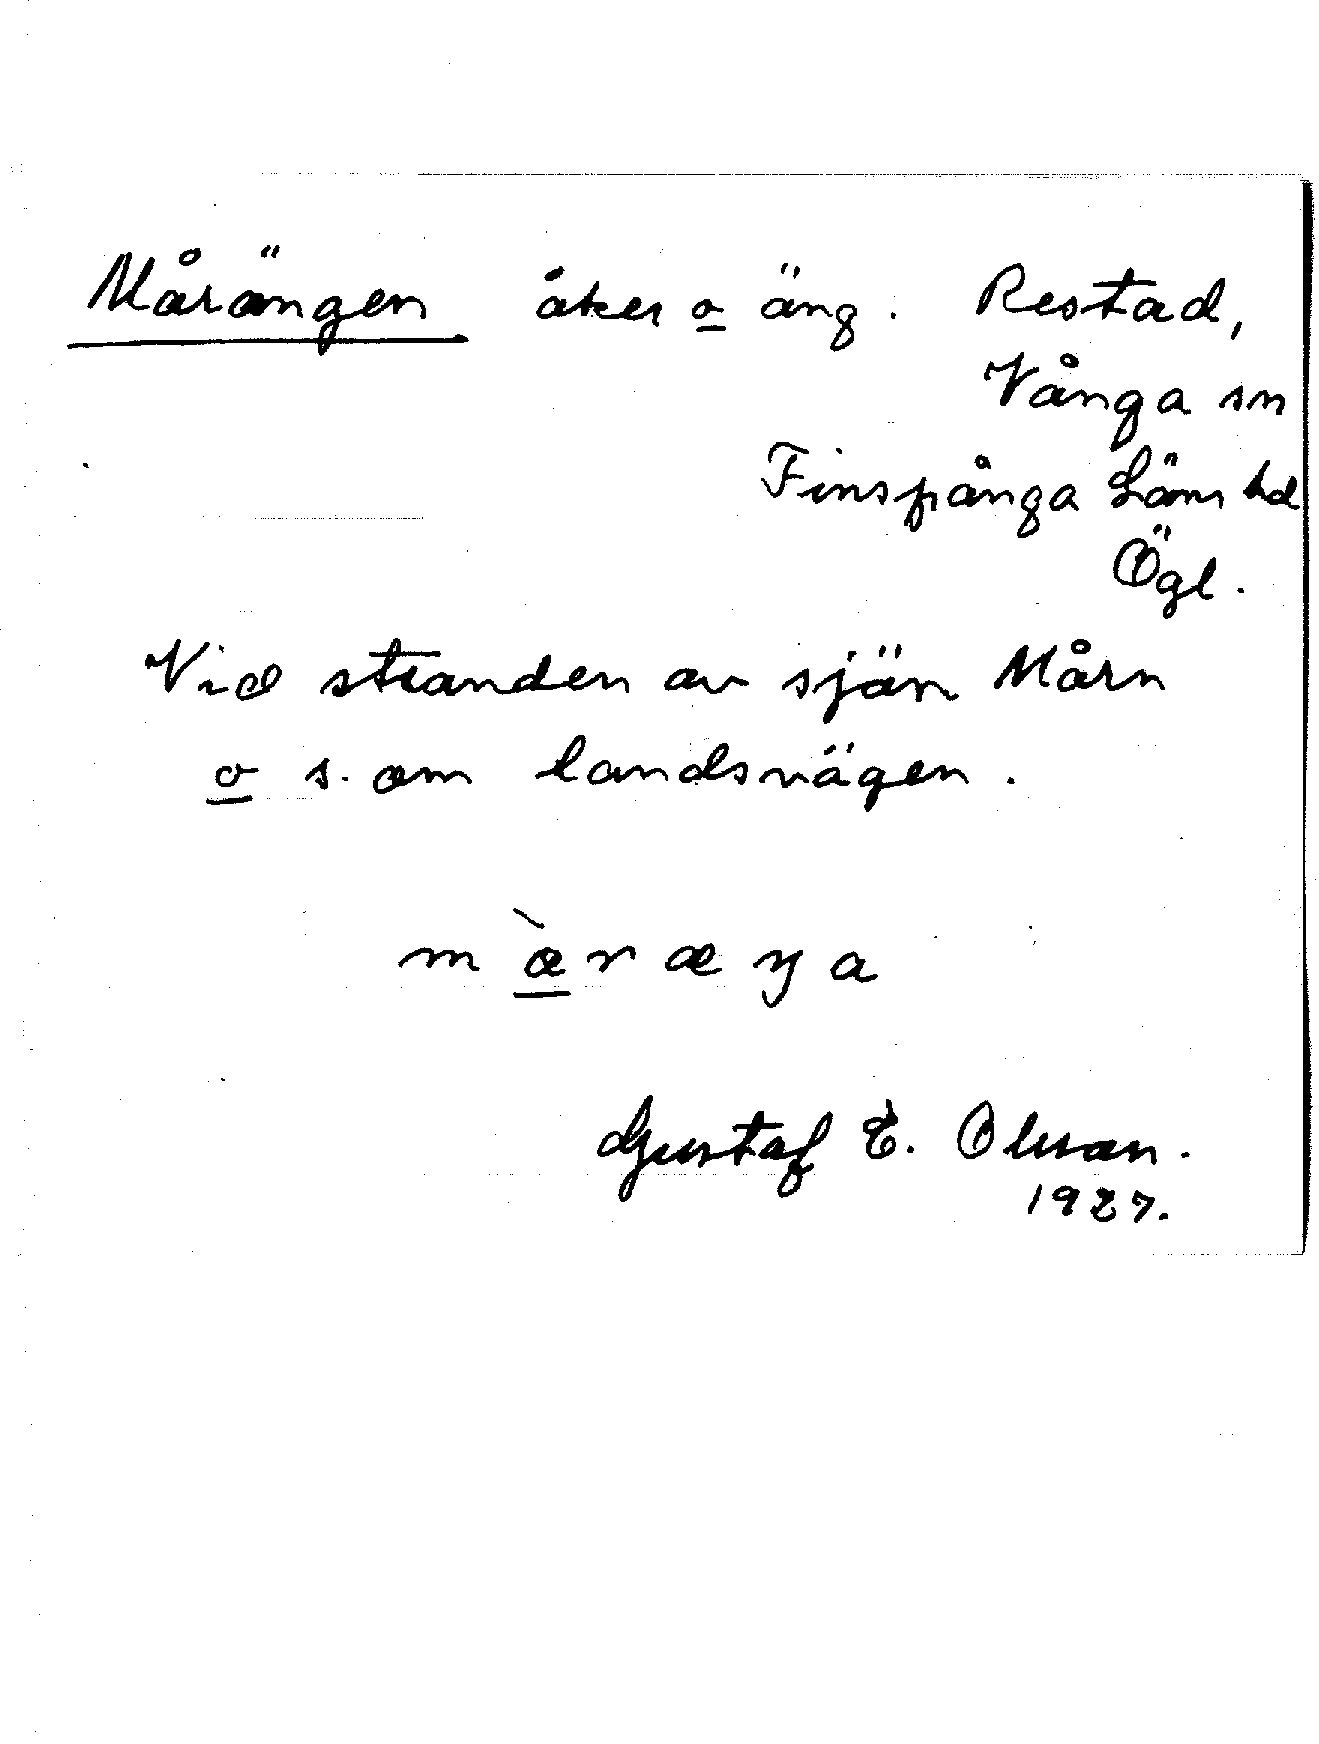 Mårängen åker o äng. Restad,
Vånga sn
Finspånga Läns hd
Ögl.
Vid stranden av sjön Mårn
o s. om landsvägen.
mæ̀ræŋa
Gustaf E. Olsson.
1927.